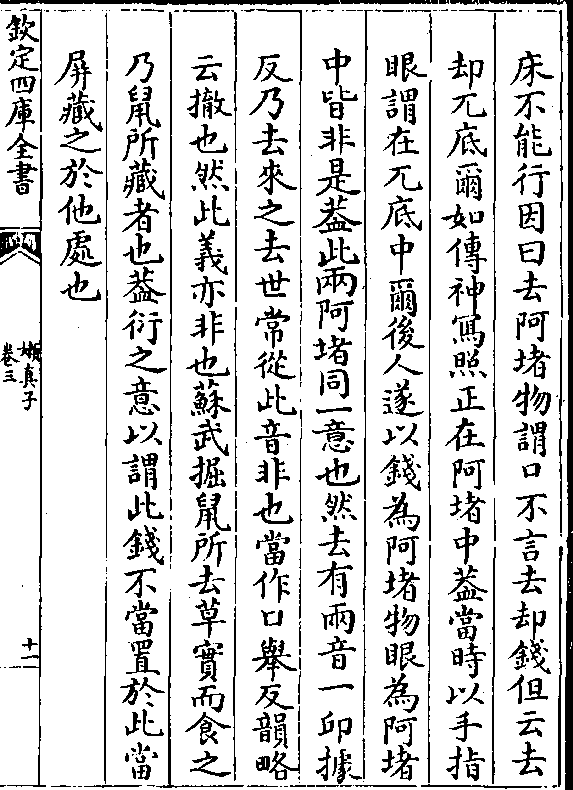 床不能行因曰去阿堵物謂口不言去却錢但云去
却兀底爾如傳神寫照正在阿堵中葢當時以手指
眼謂在兀底中爾後人遂以錢為阿堵物眼為阿堵
中皆非是葢此兩阿堵同一意也然去有兩音一邱據
反乃去來之去世常從此音非也當作口舉反韻略
云撤也然此義亦非也蘇武掘鼠所去草實而食之
乃鼠所藏者也葢衍之意以謂此錢不當置於此當
屏藏之於他處也
欽定四庫全書
嬾真子
卷三
十一